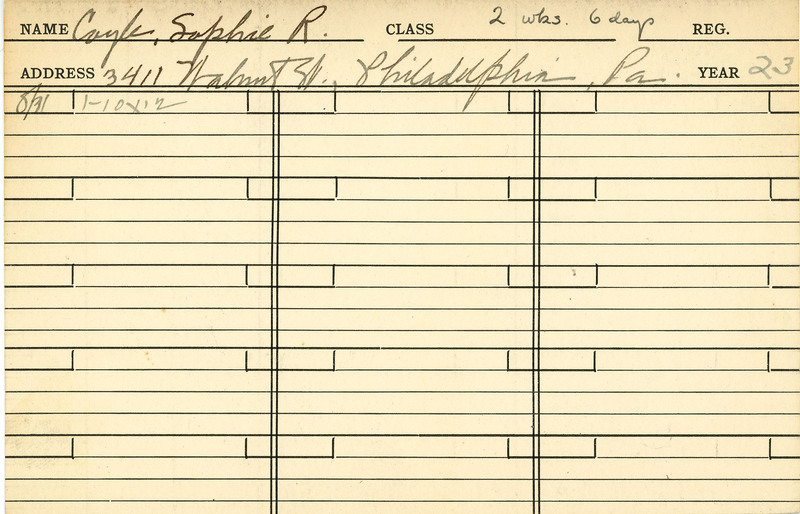 NAME Coyle, Sophie R. CLASS 2 wks. 6 days REG.
ADDRESS 3411 Walnut St., Philadelphia, Pa. YEAR 23
8/31 1-10x12